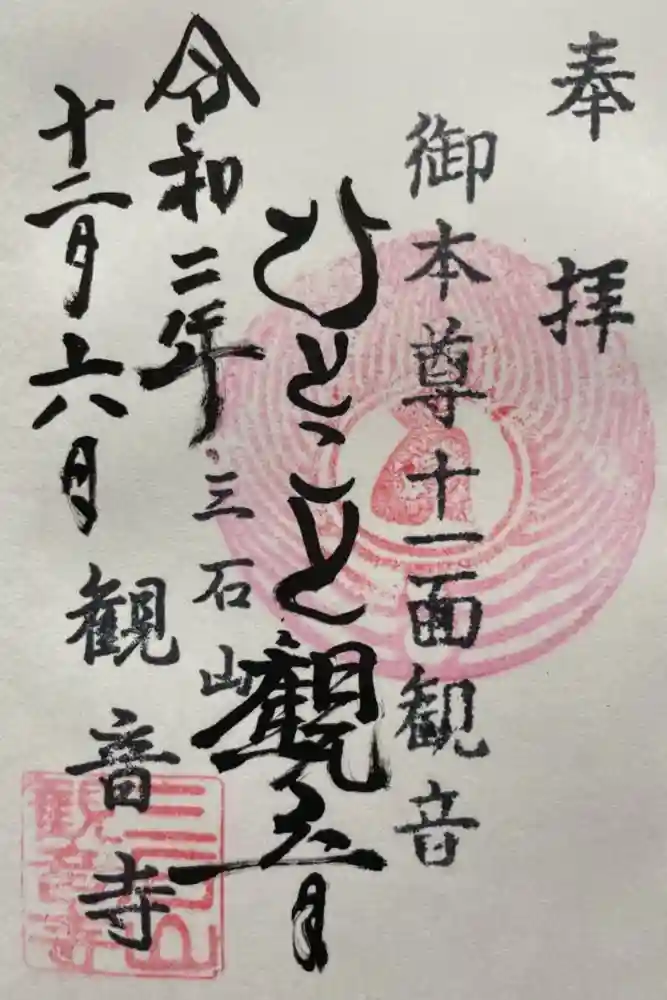 奉拝
御本尊十一面観音
ひとこと觀音
三石山
観音寺
令和二年
十二月六日
三石山
観音寺